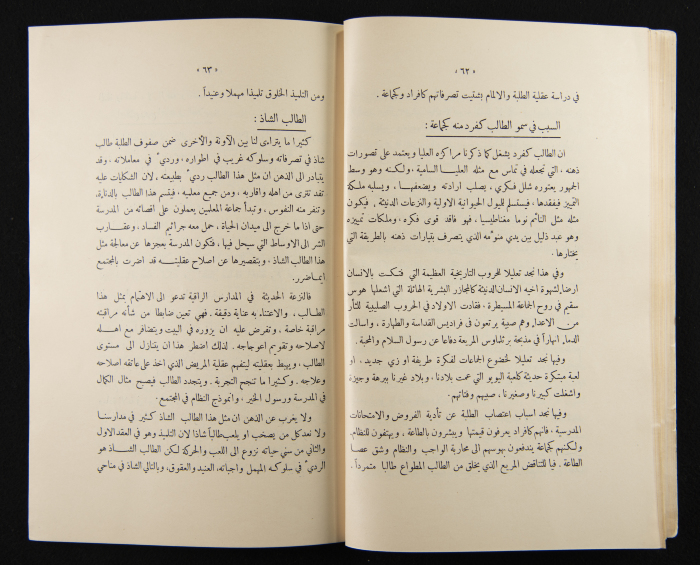 « ٦٢ »
في دراسة عقلية الطلبة والالمام بشتيت تصرفاتهم كافراد وكجماعة .
السبب في سمو الطالب كفرد منه كجماعة :
ان الطالب كفرد يشغل كما ذكرنا مراكزه العليا ويعتمد على تصورات
ذهنه ، التي تجعله في تماس مع مثله العليا السامية ، ولكنه وهو وسط
الجمهور يعتوره شلل فكري ، يصلب ارادته ويضعفها ، ويسلبه ملكة
التمييز فيفقدها ، فيستسلم للميول الحيوانية الاولية والنزعات الدنيئة ، فيكون
مثله مثل النائم نوما مغناطيسيا ، فهو فاقد قوى فكره ، وملكات تمييزه
وهو عبد ذليل بين يدي منومه الذي يتصرف بتيارات ذهنه بالطريقة التي
يختارها .
وفي هذا نجد تعليلا للحروب التاريخية العظيمة التي فتكت بالانسان
ارضاء لشهوة اخيه الانسان الدنيئة كالمجازر البشرية الهائلة التي اشعلها هوس
سقيم في روح الجماعة المسيطرة ، فقادت الاولاد في الحروب الصليبية للثأر
من الاعداء وهم صبية يرتعون في فراديس القداسة والطهارة ، واسالت
الدماء انهاراً في مذبحة برثلماوس المريعة دفاعا عن رسول السلام والمحبة .
وفيها نجد تعليلا لخضوع الجماعات لفكرة طريفة او زي جديد ، او
لعبة مبتكرة حديثة كلعبة اليويو التي عمت بلادنا ، وبلاد غيرنا ببرهة وجيزة
واشغلت كبيرنا وصغيرنا ، صبيهم وفتاتهم .
وفيها نجد اسباب اعتصاب الطلبة عن تأدية الفروض والامتحانات
المدرسية ، فانهم كافراد يعرفون قيمتها ويبشرون بالطاعة ، ويهتفون للنظام .
ولكنهم كجماعة يندفعون بهوسهم الى محاربة الواجب والنظام وشق عصا
الطاعة . فيا للتناقض المريع الذي يخلق من الطالب المطواع طالبا متمرداً .
« ٦٣ »
ومن التلميذ الخلوق تلميذا مهملا وعنيداً .
الطالب الشاذ :
كثيرا ما يتراءى لنا بين الآونة والاخرى ضمن صفوف الطلبة طالب
شاذ في تصرفاته وسلوكه غريب في اطواره ، وردي في معاملاته ، وقد
يتبادر الى الذهن ان مثل هذا الطالب ردي بطبيعته ، لان الشكايات عليه
تفد تترى من اهله واقاربه ، ومن جميع معلميه ، فيتسم هذا الطالب بالدناءة
وتنفر منه النفوس . وتبدأ جماعة المعلمين يعملون على اقصائه من المدرسة
حتى اذا ما خرج الى ميدان الحياة ، حمل معه جراثيم الفساد ، وعقارب
الشر الى الاوساط التي سيحل فيها ، فتكون المدرسة بعجزها عن معالجة مثل
هذا الطالب الشاذ ، وبتقصيرها عن اصلاح عقليته قد اضرت بالمجتمع
ايما ضرر .
فالنزعة الحديثة في المدارس الراقية تدعو الى الاهتمام بمثل هذا
الطالب ، والاعتناء به عناية دقيقة . فهي تعين ضابطا من شأنه مراقبته
مراقبة خاصة ، وتفرض عليه ان يزوره في البيت ويتضافر مع اهله
لاصلاحه وتقويم اعوجاجه . لذلك اضطر هذا ان يتنازل الى مستوى
الطالب ، ويهبط بعقليته ليتفهم عقلية المريض الذي اخذ على عاتقه اصلاحه
وعلاجه . وكثيرا ما تنجح التجربة . ويتجدد الطالب فيصبح مثال الكمال
في المدرسة ورسول الخير ، وانموذج النظام في المجتمع .
ولا يغرب عن الذهن ان مثل هذا الطالب الشاذ كثير في مدارسنا
ولا نعد كل من يصخب او يلعب طالباً شاذا لان التلميذ وهو في العقد الاول
والثاني من سني حياته نزوع الى اللعب والحركة لكن الطالب الشاذ هو
الردي في سلوكه المهمل واجباته ، العنيد والعقوق ، وبالتالي الشاذ في مناحي